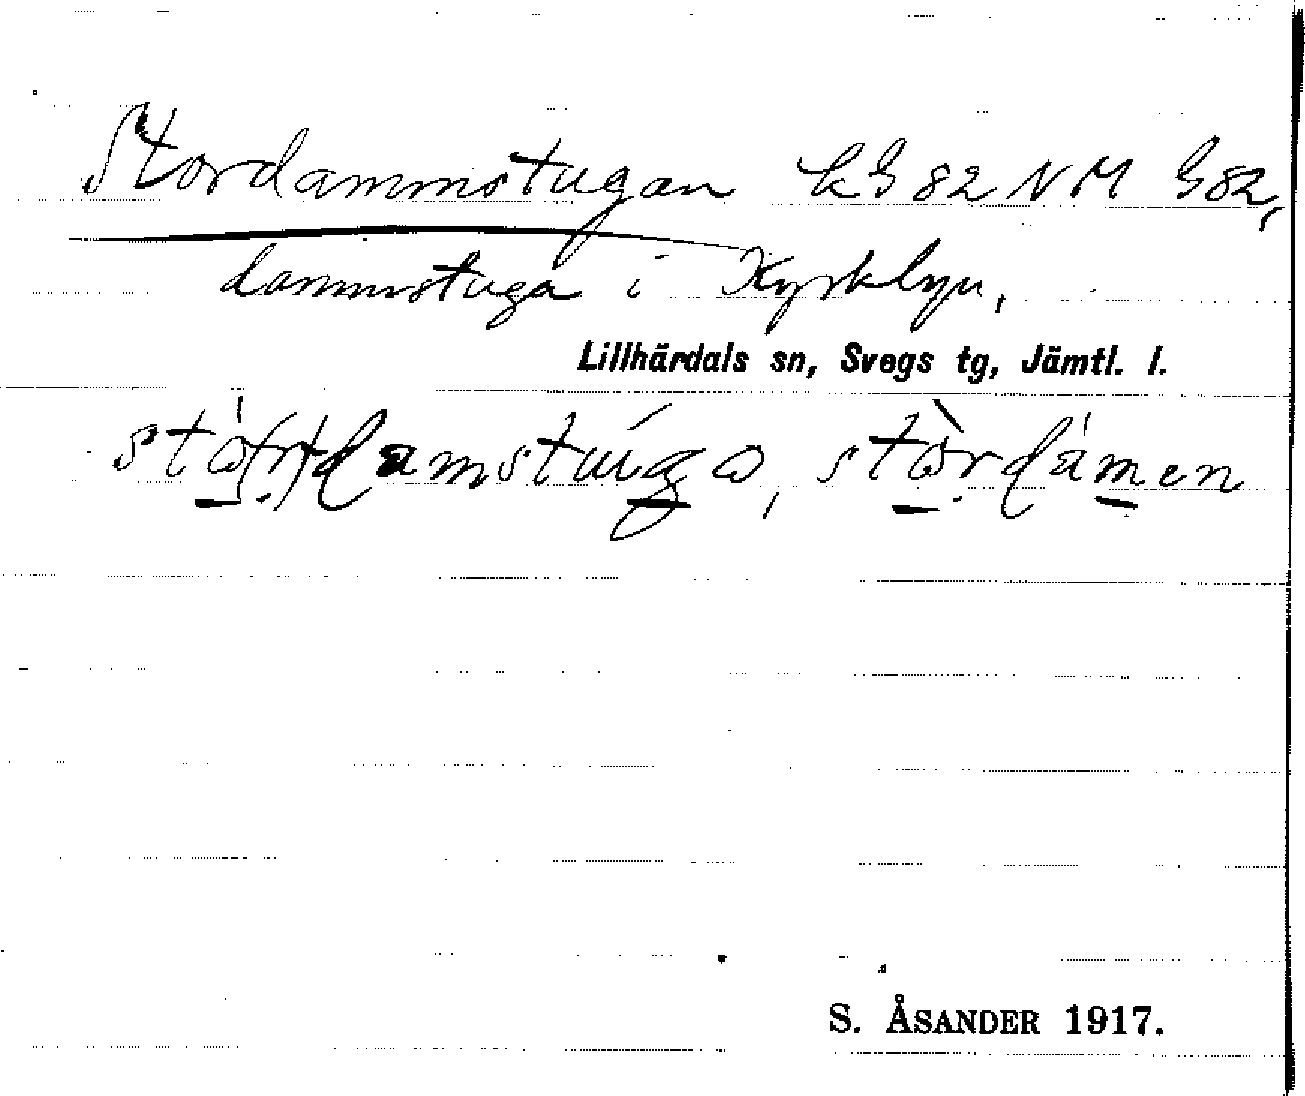 Stordammstugan LG 82 NM G 82,
dammstuga i Kyrkbyn,
Lillhärdals sn, Svegs tg, Jämtl. l.
stó(r)damstúga, stòrdámen
S. ÅSANDER 1917.